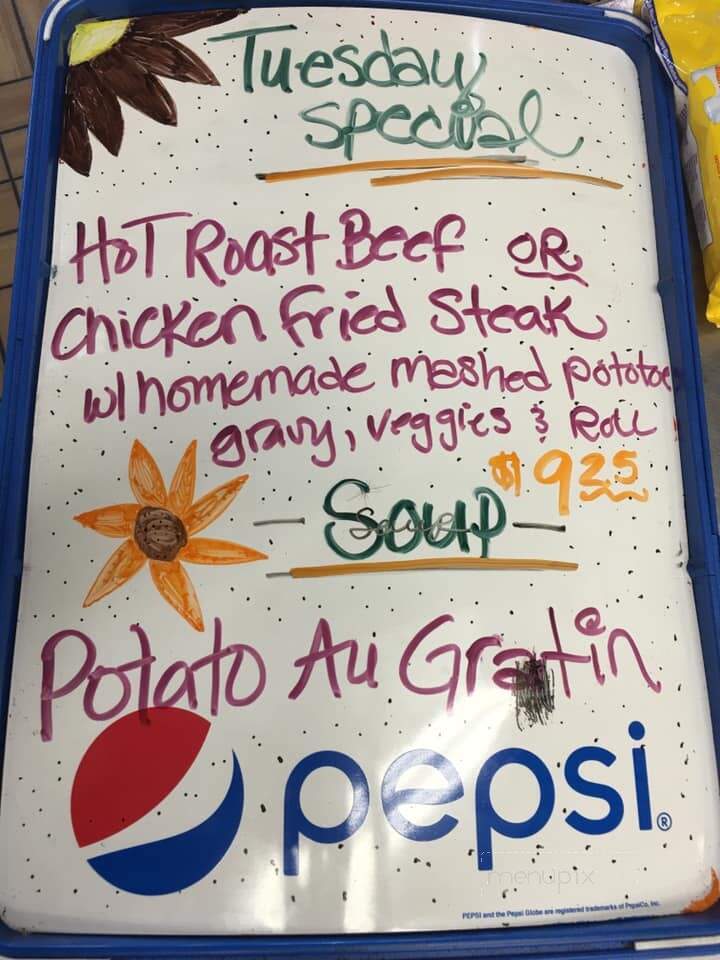 Tuesday
Special
HoT Roast Beef OR
Chicken Fried Steak
w/ homemade mashed pototoe
gravy, veggies & Roll
$9 25
- Soup -
Potato Au Gratin
pepsi®
menupix
PEPSI and the Pepsi Globe are registered trademarks of PepsiCo, Inc.